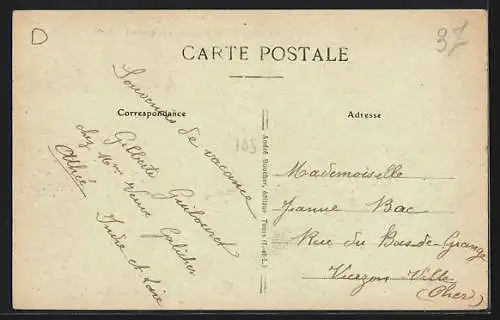 D
37
CARTE POSTALE
Correspondance
Adresse
Souvenir de vacance
Gilberte Guibouret
chez Mme Veuve Galicher
Athée
Indre et Loire
André Boucher, éditeur Tours (I.-et-L.)
Mademoiselle
Jeanne Bac
Rue du Bas-de-Grange
Vierzon Ville
(Cher)